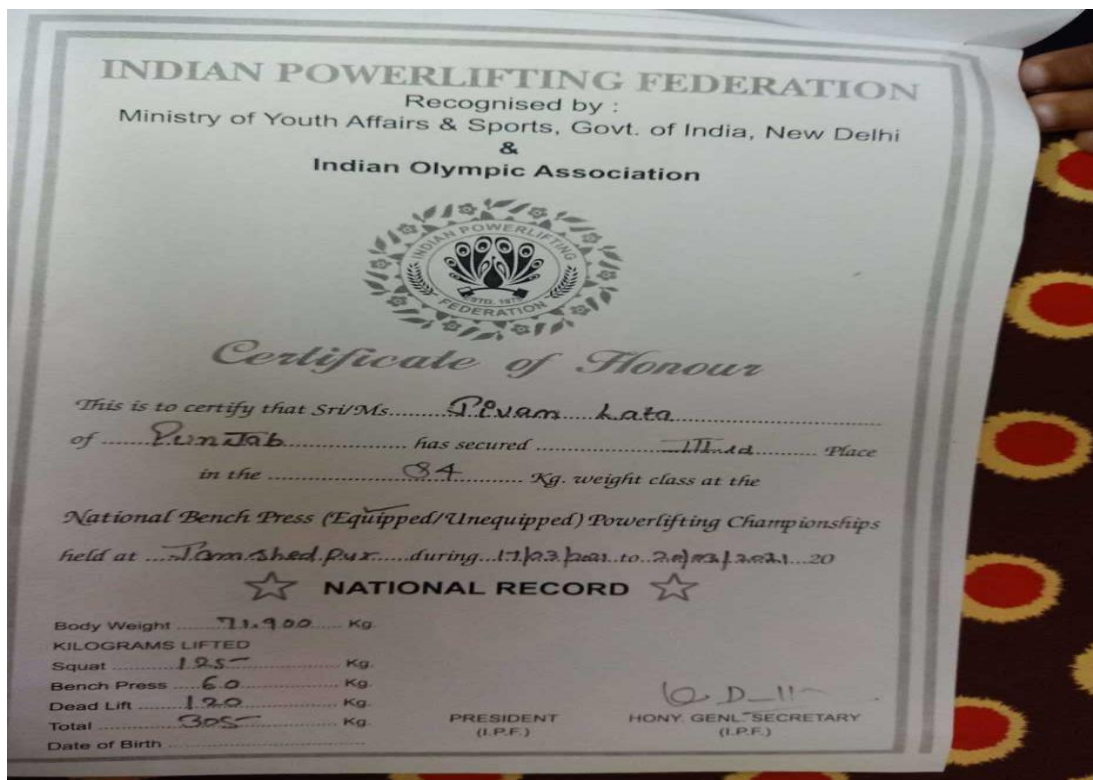 INDIAN POWERLIFTING FEDERATION
Recognised by :
Ministry of Youth Affairs & Sports, Govt. of India, New Delhi
&
Indian Olympic Association
INDIAN POWERLIFTING
ESTD. 197
FEDERATION
Certificate of Honour
This is to certify that Sri/Ms. Lata
of PunJab has secured IIIrd Place
in the 84 Kg. weight class at the
National Bench Press (Equipped/Unequipped) Powerlifting Championships
held at Jamshedpur during 17/03/2021 to 20/03/2021 20
NATIONAL RECORD
Body Weight 71.900 Kg.
KILOGRAMS LIFTED
Squat 125 Kg.
Bench Press 60 Kg.
Dead Lift 120 Kg.
Total 305 Kg.
PRESIDENT HONY. GENL. SECRETARY
(I.P.F.) (I.P.F.)
Date of Birth